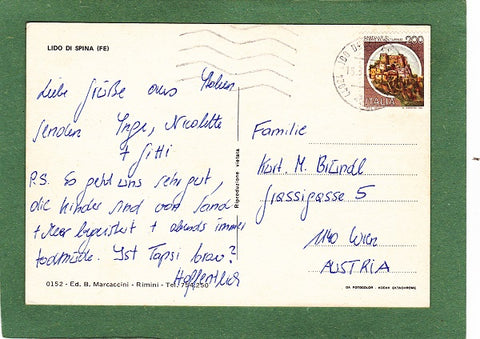 LIDO DI SPINA (FE)
Liebe Grüße aus Italien
senden Inge, Nicolette
+ Gitti
P.S. Es geht uns sehr gut,
die Kinder sind von Sand
+ Meer begeistert + abends immer
todmüde. Ist Tapsi brav?
Hoffentlich
0152 - Ed. B. Marcaccini - Rimini - Tel. 794250
Riproduzione vietata
200
ITALIA
Familie
Kurt. M. Bründl
Grassigasse 5
1140 Wien
AUSTRIA
DA FOTOCOLOR - KODAK EKTACHROME